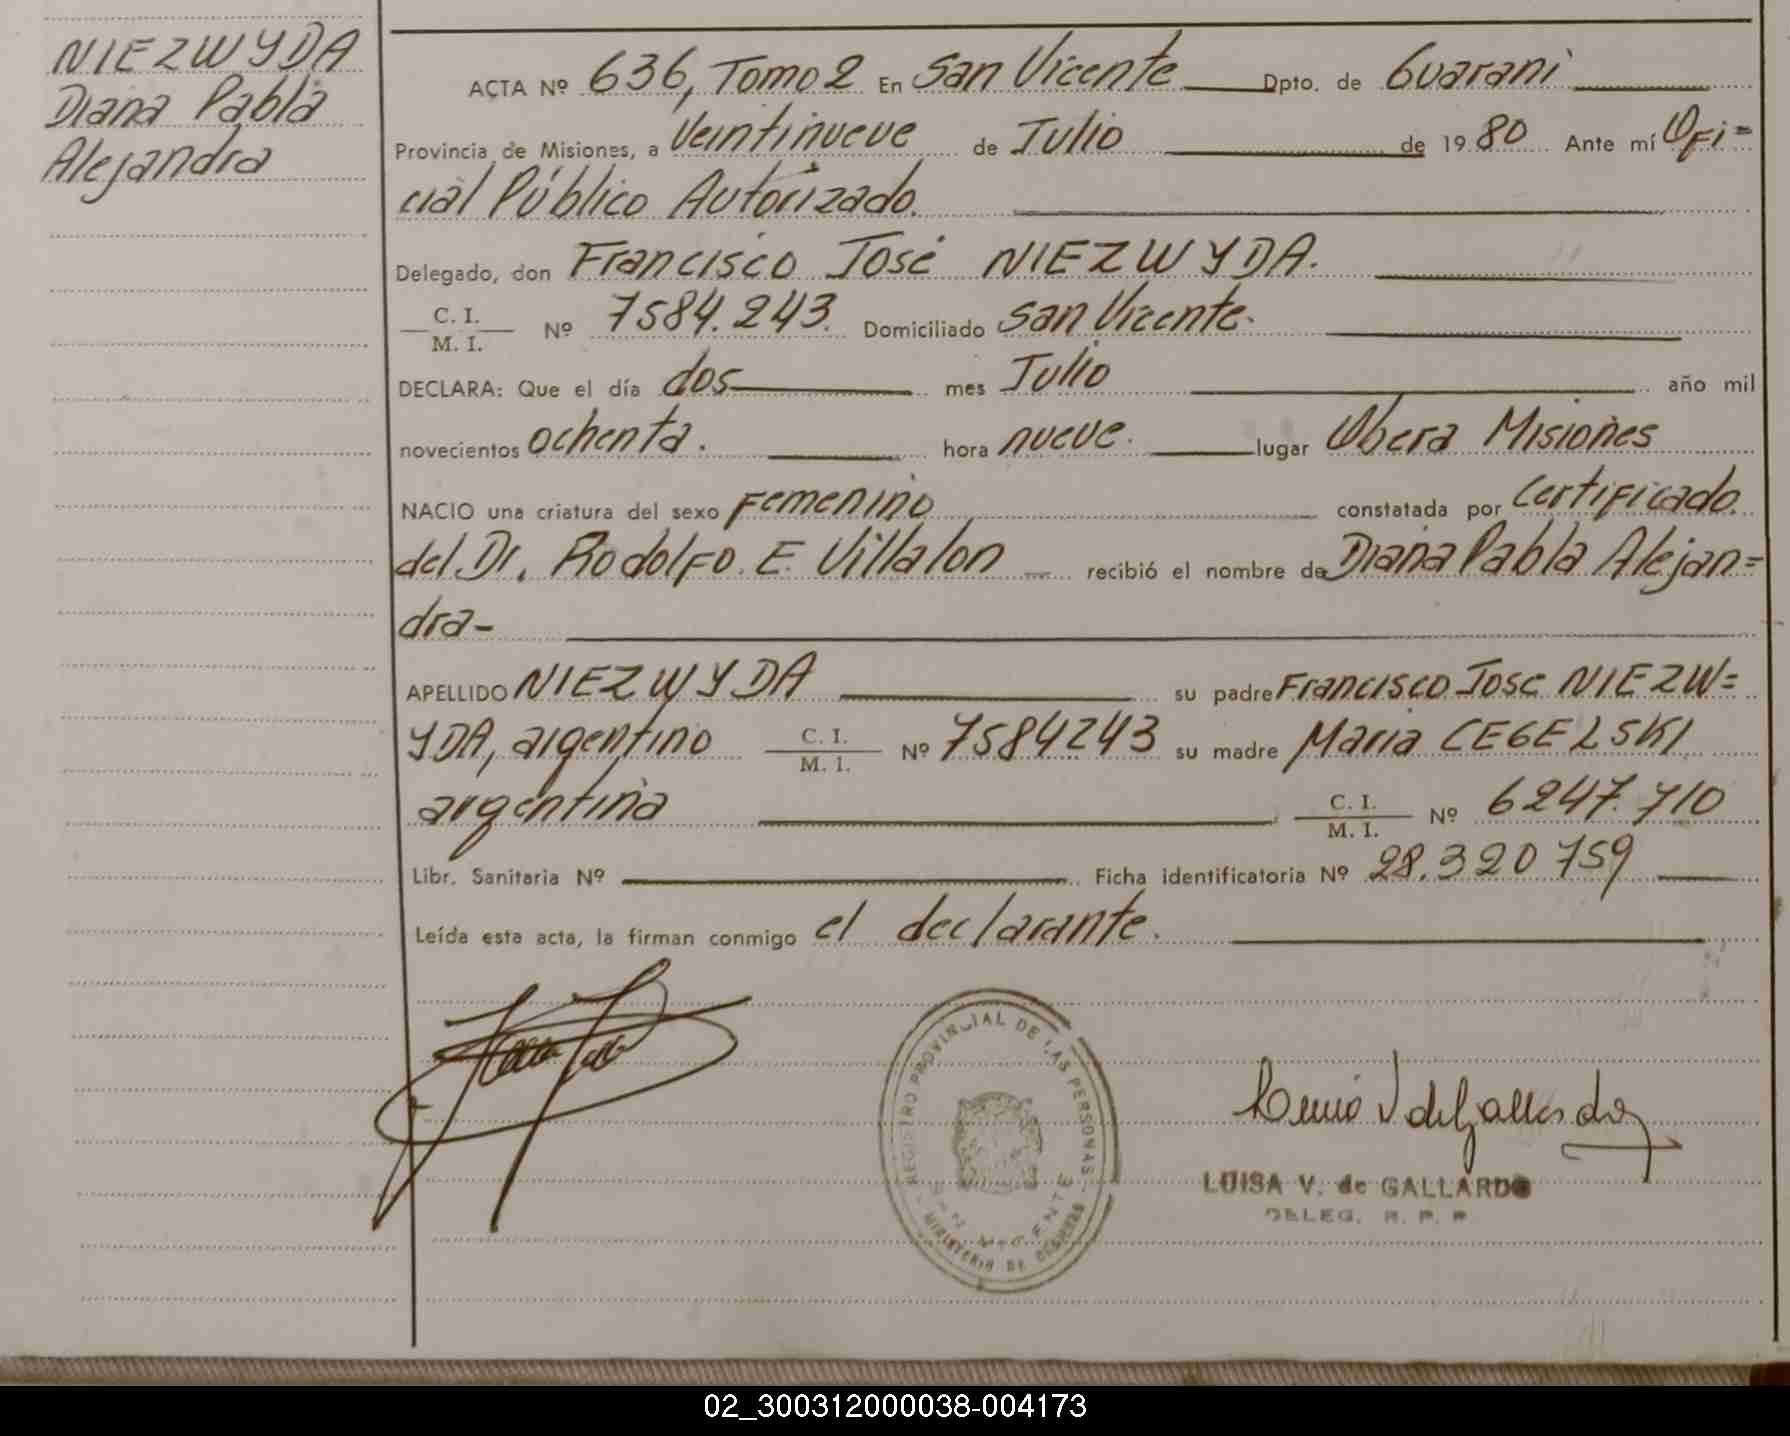 NIEZWYDA
Diana Pabla
Alejandra
ACTA Nº 636, Tomo 2 En San Vicente Dpto. de Guarani
Provincia de Misiones, a Veintinueve de Julio de 1980 Ante mí Ofi=
cial Público Autorizado.
Delegado, don Francisco José NIEZWYDA.
C. I.
M. I. Nº 7584.243. Domiciliado San Vicente.
DECLARA: Que el día dos mes Julio año mil
novecientos ochenta. hora nueve. lugar Obera Misiones
NACIO una criatura del sexo Femenino constatada por Certificado
del Dr. Rodolfo. E. Villalon recibió el nombre de Diana Pabla Alejan=
dra-
APELLIDO NIEZWYDA su padre Francisco Jose NIEZW=
YDA, argentino C. I. M. I. Nº 7584243 su madre Maria CEGELSKI
argentina C. I. M. I. Nº 6247.710
Libr. Sanitaria Nº Ficha identificatoria Nº 28.320759
Leída esta acta, la firman conmigo el declarante.
REGISTRO PROVINCIAL DE LAS PERSONAS
SAN VICENTE
MINISTERIO DE GOBIERNO
LUISA V. de GALLARDO
DELEG. R. P. P.
02_300312000038-004173